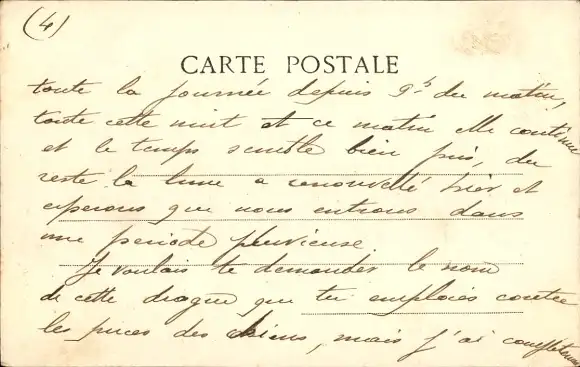 (4)
CARTE POSTALE
toute la journée depuis 9h du matin,
toute cette nuit et ce matin elle continue
et le temps semble bien pris, du
reste la lune a renouvellé hier et
esperons que nous entrons dans
une periode pluvieuse.
Je voulais te demander le nom
de cette drogue que tu emploies contre
les puces des chiens, mais j'ai